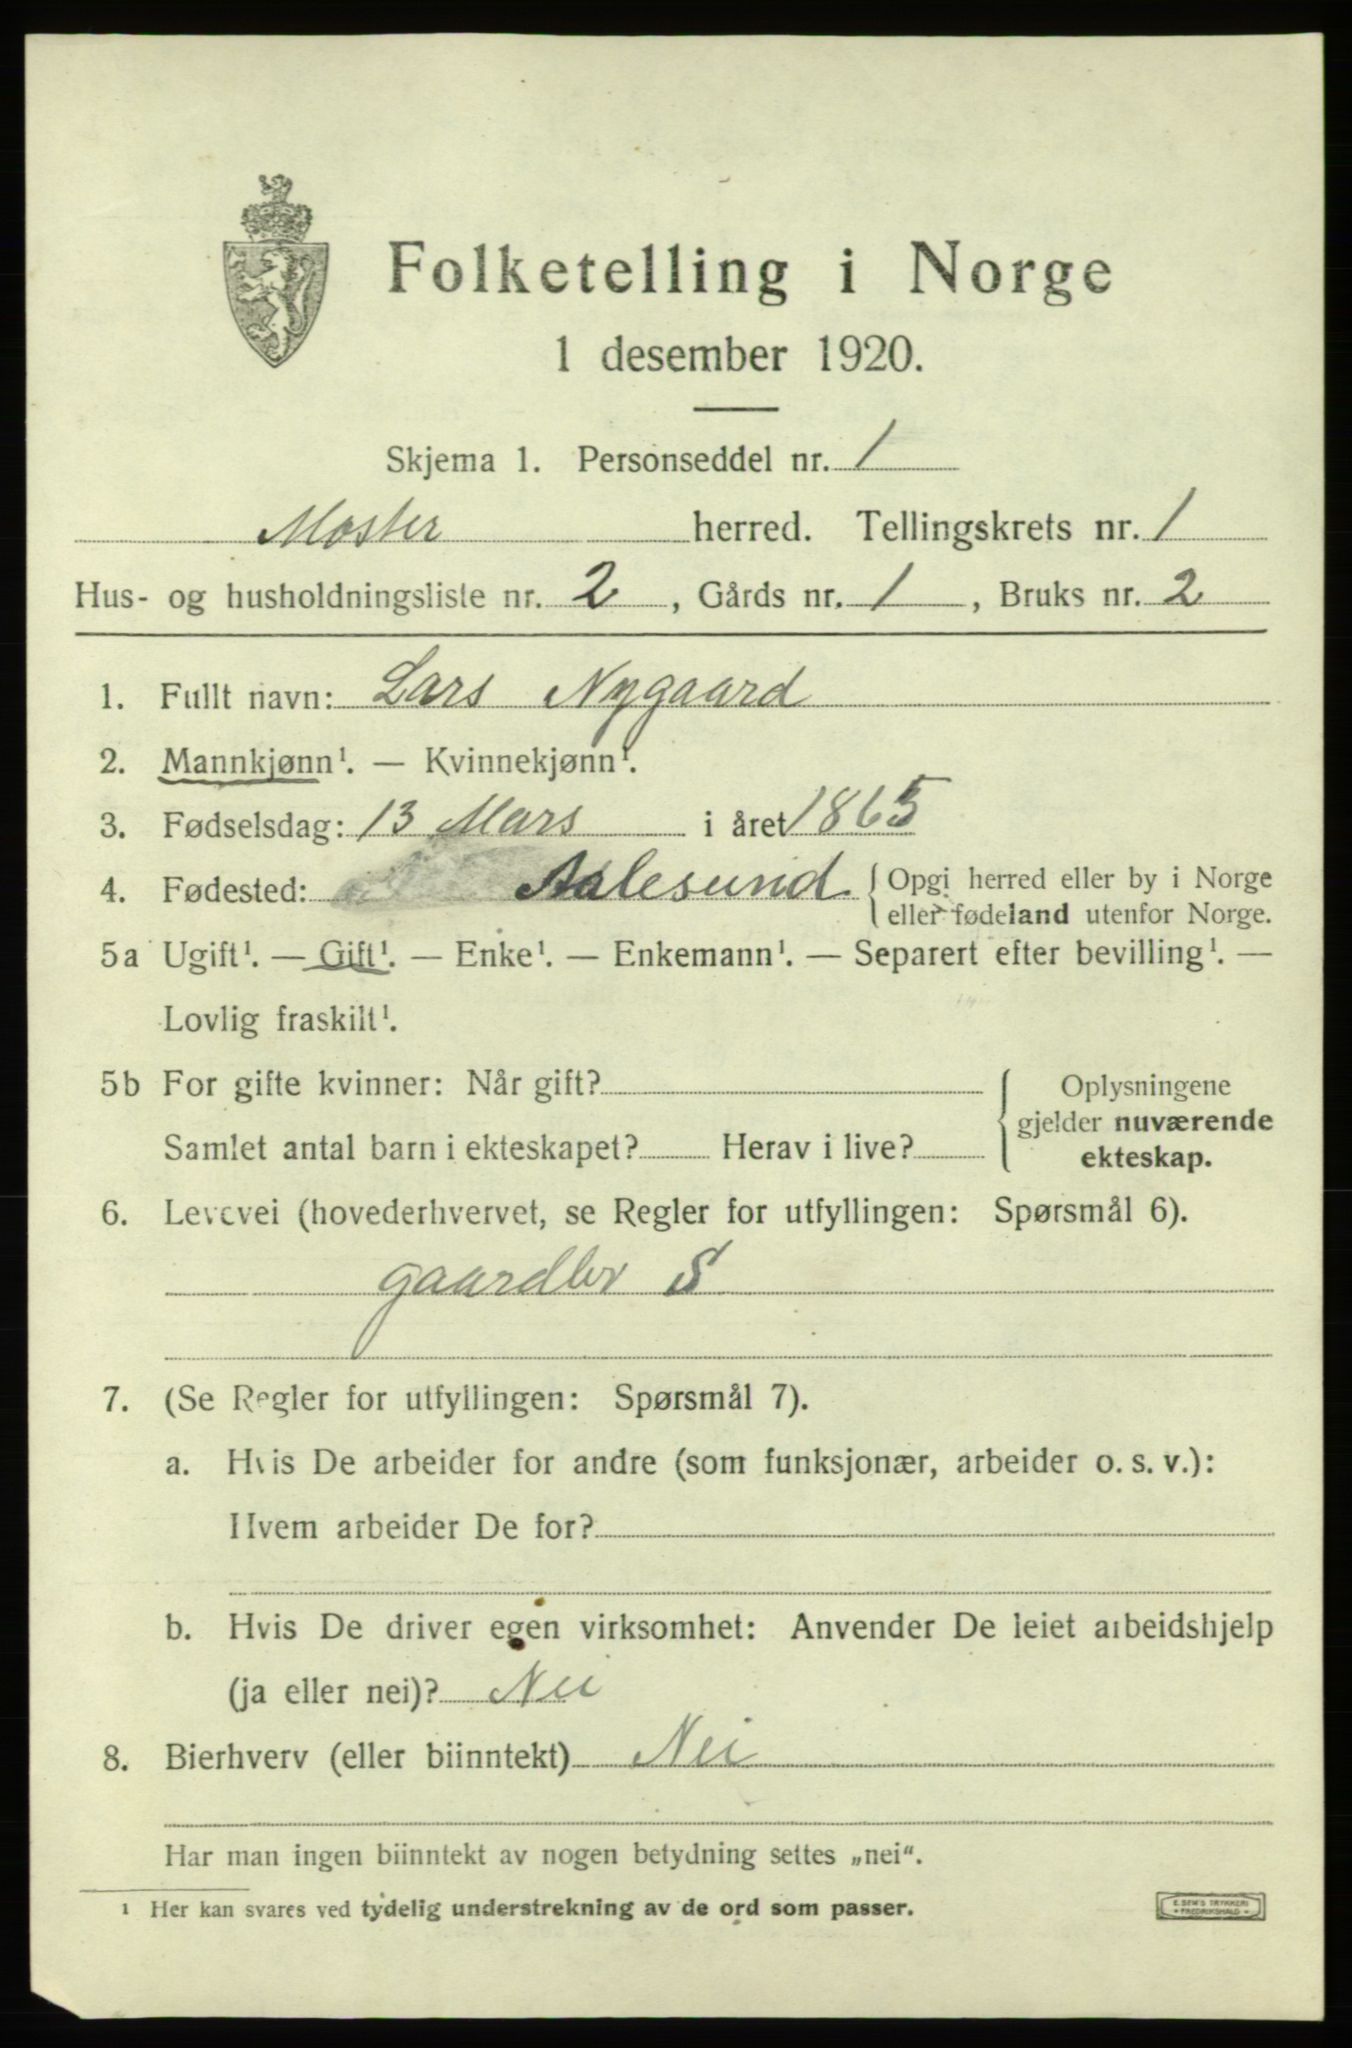 Folketelling i Norge
1 desember 1920.
Skjema 1. Personseddel nr. 1
Moster herred. Tellingskrets nr. 1
Hus- og husholdningsliste nr. 2, Gårds nr. 1, Bruks nr. 2
1. Fullt navn: Lars Nygaard
2. Mannkjønn¹. — Kvinnekjønn¹.
3. Fødselsdag: 13 Mars i året 1865
4. Fødested: Aalesund { Opgi herred eller by i Norge
eller fødeland utenfor Norge.
5a Ugift¹. — Gift¹. — Enke¹. — Enkemann¹. — Separert efter bevilling¹. —
Lovlig fraskilt¹.
5b For gifte kvinner: Når gift?
Samlet antal barn i ekteskapet? Herav i live?
{ Oplysningene
gjelder nuværende
ekteskap.
6. Levevei (hovederhvervet, se Regler for utfyllingen: Spørsmål 6).
gaardbr S
7. (Se Regler for utfyllingen: Spørsmål 7).
a. Hvis De arbeider for andre (som funksjonær, arbeider o. s. v.):
Hvem arbeider De for?
b. Hvis De driver egen virksomhet: Anvender De leiet arbeidshjelp
(ja eller nei)? Nei
8. Bierhverv (eller biinntekt) Nei
Har man ingen biinntekt av nogen betydning settes „nei“.
¹ Her kan svares ved tydelig understrekning av de ord som passer.
E. SEM'S TRYKKERI
FREDRIKSHALD